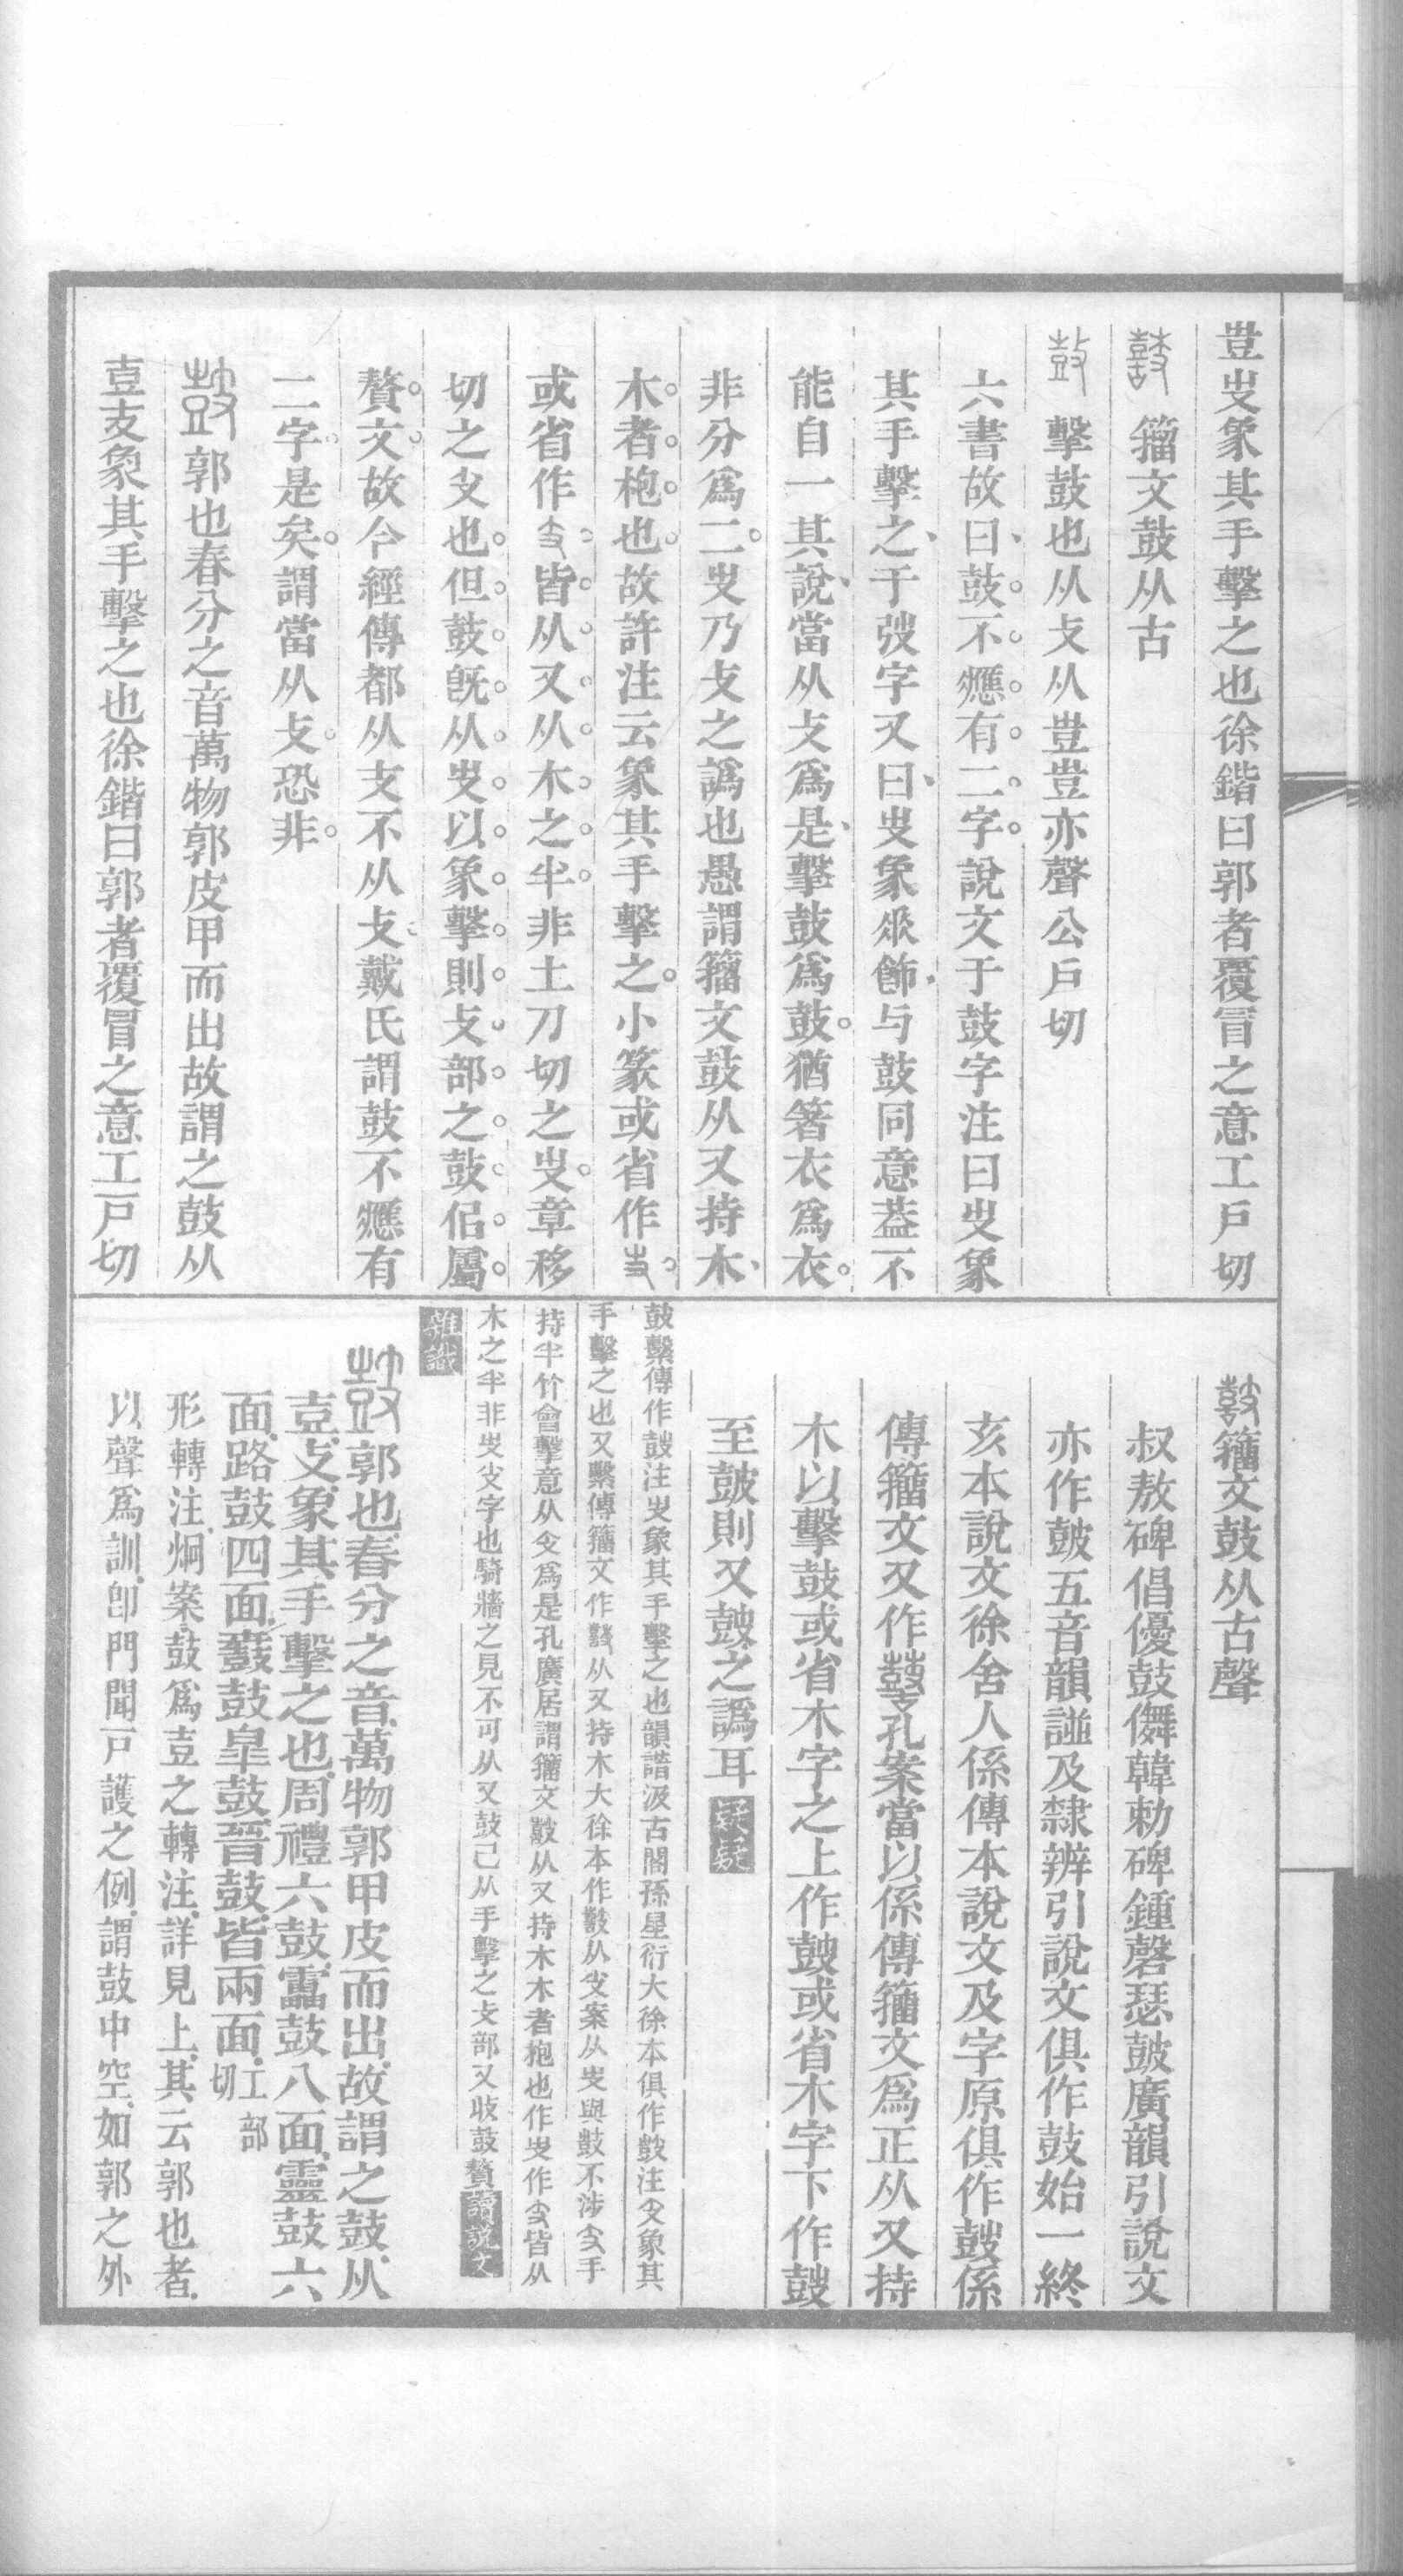 豈㞢象其手擊之也徐鍇曰郭者覆冒之意工戶切
籒文鼓从古
擊鼓也从攴从豈豈亦聲公戶切
六書故曰鼓不應有二字說文于鼓字注曰㞢象
其手擊之于弢字又曰㞢象飾与鼓同意葢不
能自一其說當从攴爲是擊鼓爲鼓猶箸衣爲衣
非分爲二㞢乃攴之譌也愚謂籒文鼓从又持木
木者枹也故許注云象其手擊之小篆或省作
或省作皆从又从木之半非土刀切之㞢章移
切之攴也但鼓旣从㞢以象擊則攴部之鼓侣屬
贅文故今經傳都从支不从攴戴氏謂鼓不應有
二字是矣謂當从攴恐非
郭也春分之音萬物郭皮甲而出故謂之鼓从
壴支象其手擊之也徐鍇曰郭者覆冒之意工戶切
籒文鼓从古聲
叔敖碑倡優鼓儛韓勅碑鍾磬瑟皷廣韻引說文
亦作皷五音韻諩及隸辨引說文俱作鼓始一終
亥本說文徐舍人係傳本說文及字原俱作鼔係
傳籒文又作孔案當以係傳籒文爲正从又持
木以擊鼓或省木字之上作皷或省木字下作鼓
至皷則又鼓之譌耳
鼓繫傳作鼓注㞢象其手擊之也韻譜汲古閣孫星衍大徐本俱作鼓注攴象其
手擊之也又繫傳籒文作从又持木大徐本作从攴案从㞢與鼓不涉手
持半竹會擊意从攴爲是孔廣居謂籒文从又持木木者枹也作㞢作皆从
木之半非㞢攴字也騎牆之見不可从又鼓已从手擊之攴部又收鼓贅讀說文
雜識
郭也春分之音萬物郭甲皮而出故謂之鼓从
壴攴象其手擊之也周禮六鼓靁鼓八面靈鼓六
面路鼓四面鼖鼓皐鼓晉鼓皆兩面工部切
形轉注炯案鼓爲壴之轉注詳見上其云郭也者
以聲爲訓卽門聞戶護之例謂鼓中空如郭之外